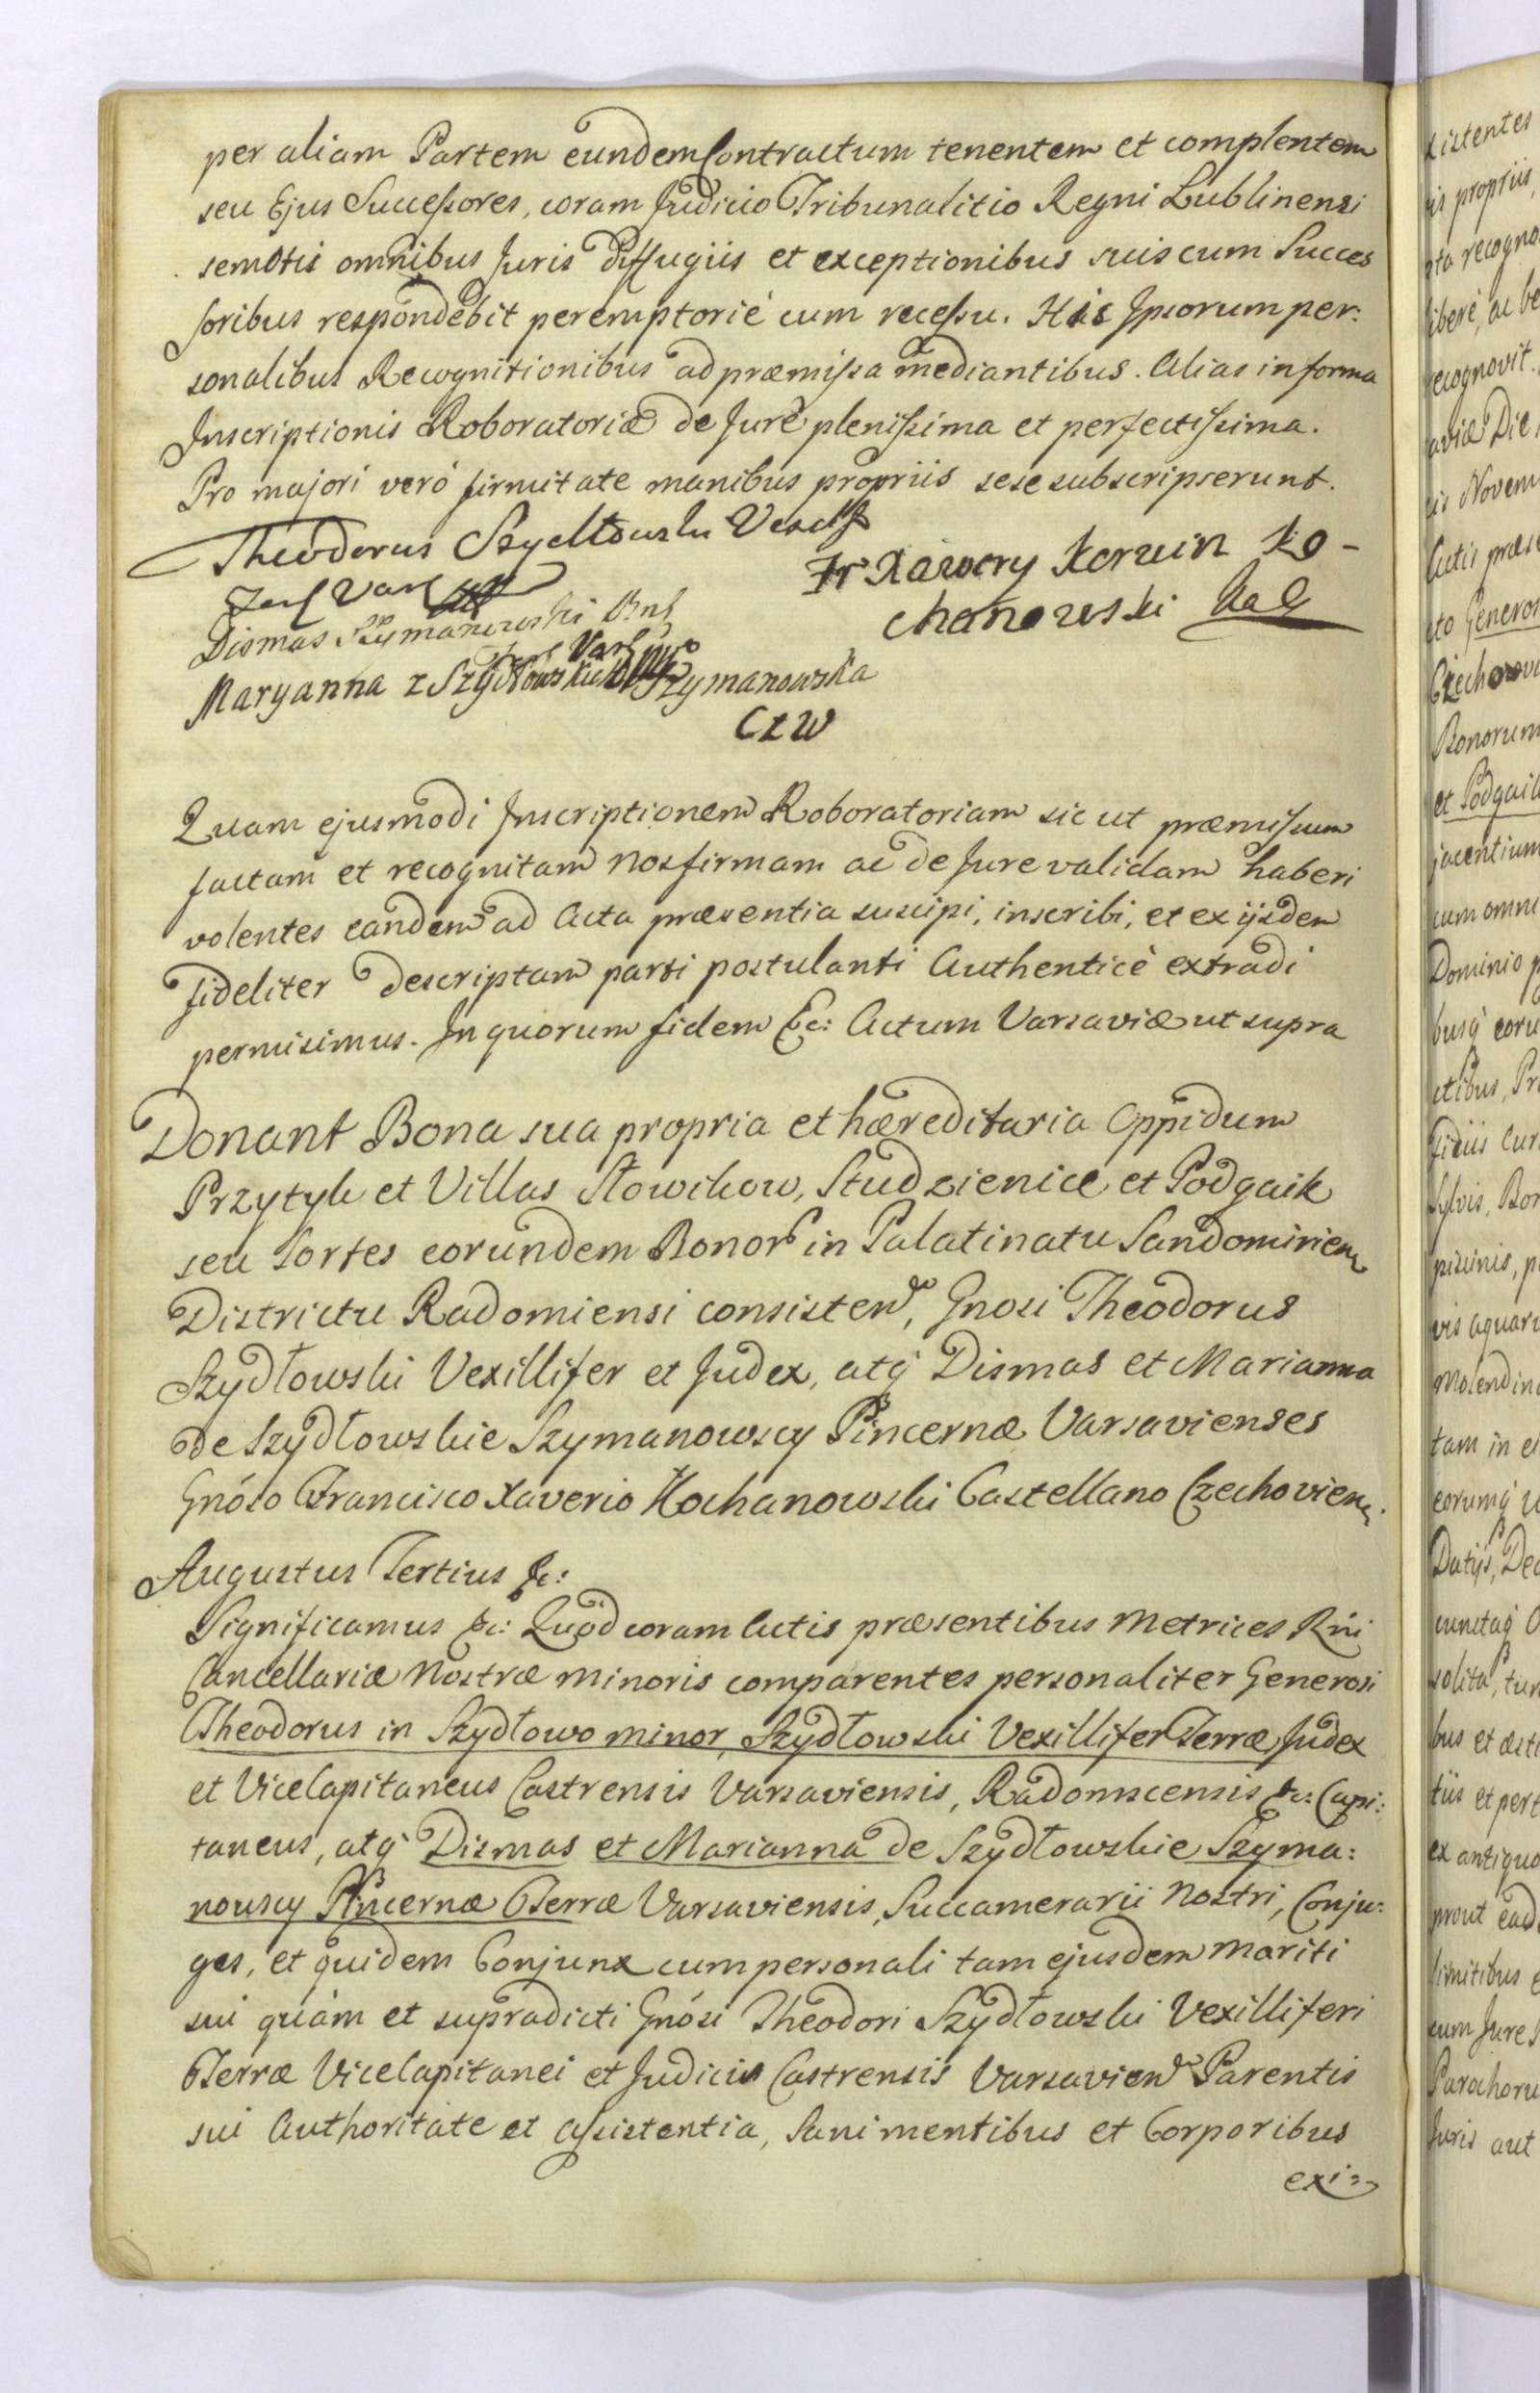 per aliam Partem eundem Contractum tenentem et complentem
seu Ejus Successores, coram Judicio Tribunalitio Regni Lublinensi
semotis omnibus Juris diffugiis et exceptionibus suis cum Succes
soribus respondebit peremptoriè cum recessu. His Ipsorum per:
sonalibus Recognitionibus ad præmissa mediantibus. Alias in forma
Inscriptionis Roboratoriæ de Jure plenissima et perfectissima.
Pro majori verò firmitate manibus propriis sese subscripserunt.
Theodorus Szydłowski
Fr Xawery Korwin Ko-
chanowski
Dismas Szymanowski
Maryanna z Szydłowskich Szymanowska
CzW
Quam ejusmodi Inscriptionem Roboratoriam sic ut præmissum
factam et recognitam Nos firmam ac de Jure validam haberi
volentes eandem ad Acta præsentia suscipi, inscribi, et ex ijsdem
fideliter descriptam parti postulanti Authenticè extradi
permisimus. In quorum fidem &c: Actum Varsaviæ ut supra
Donant Bona sua propria et hæreditaria Oppidum
Przytyk et Villas Słowików, Studzienice et Podgaik
seu Sortes eorundem Bonor in Palatinatu Sandomirien
Districtu Radomiensi consisten, Gnosi Theodorus
Szydłowski Vexillifer et Judex, atq Dismas et Marianna
de Szydłowskie Szymanowscy Pincernæ Varsavienses
Gnóso Francisco Xaverio Kochanowski Castellano Czechovien.
Augustus Tertius &c:
Significamus &c: Quod coram Actis præsentibus Metrices Rni
Cancellariæ Nostræ minoris comparentes personaliter Generosi
Theodorus in Szydłowo minor, Szydłowski Vexillifer Terræ, Judex
et ViceCapitaneus Castrensis Varsaviensis, Radomscensis &c: Capi:
taneus, atq Dismas et Marianna de Szydłowskie Szyma:
nowscy Pincernæ Terræ Varsaviensis, Succamerarii Nostri, Conju:
ges, et quidem Conjunx cum personali tam ejusdem Mariti
sui quàm et supradicti Gnósi Theodori Szydłowski Vexilliferi
Terræ ViceCapitanei et Judicis Castrensis Varsavien Parentis
sui Authoritate et Assistentia, Sani mentibus et Corporibus
exi=